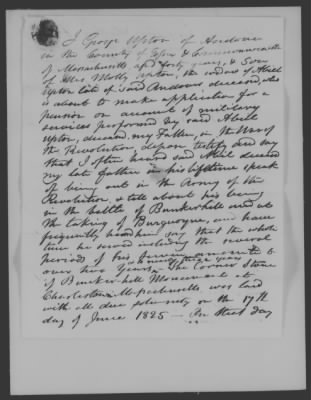 I George Upton of Andover
in the County of Essex & Commonwealth
of Massachusetts aged forty years, & Son
of Mrs Molly Upton, the widow of Abiel
Upton late of said Andover deceased, who
is about to make application for a
pension on account of military
services performed by said Abiel
Upton, deceased, my Father, in the War of
the Revolution, depose testify and say
that I often heard said Abiel deceased
my late father in his lifetime speak
of being out in the Army of the
Revolution, & tell about his being
in the battle of Bunkerhill and at
the taking of Burgoyne, and have
frequently heard him say that the whole
time he served including the several
periods of his service amounted to
over two Years
The Corner Stone
of Bunker hill Monument at
Charlestown Massachusetts was laid
with all due solemnity on the 17th
day of June 1825 — On that day